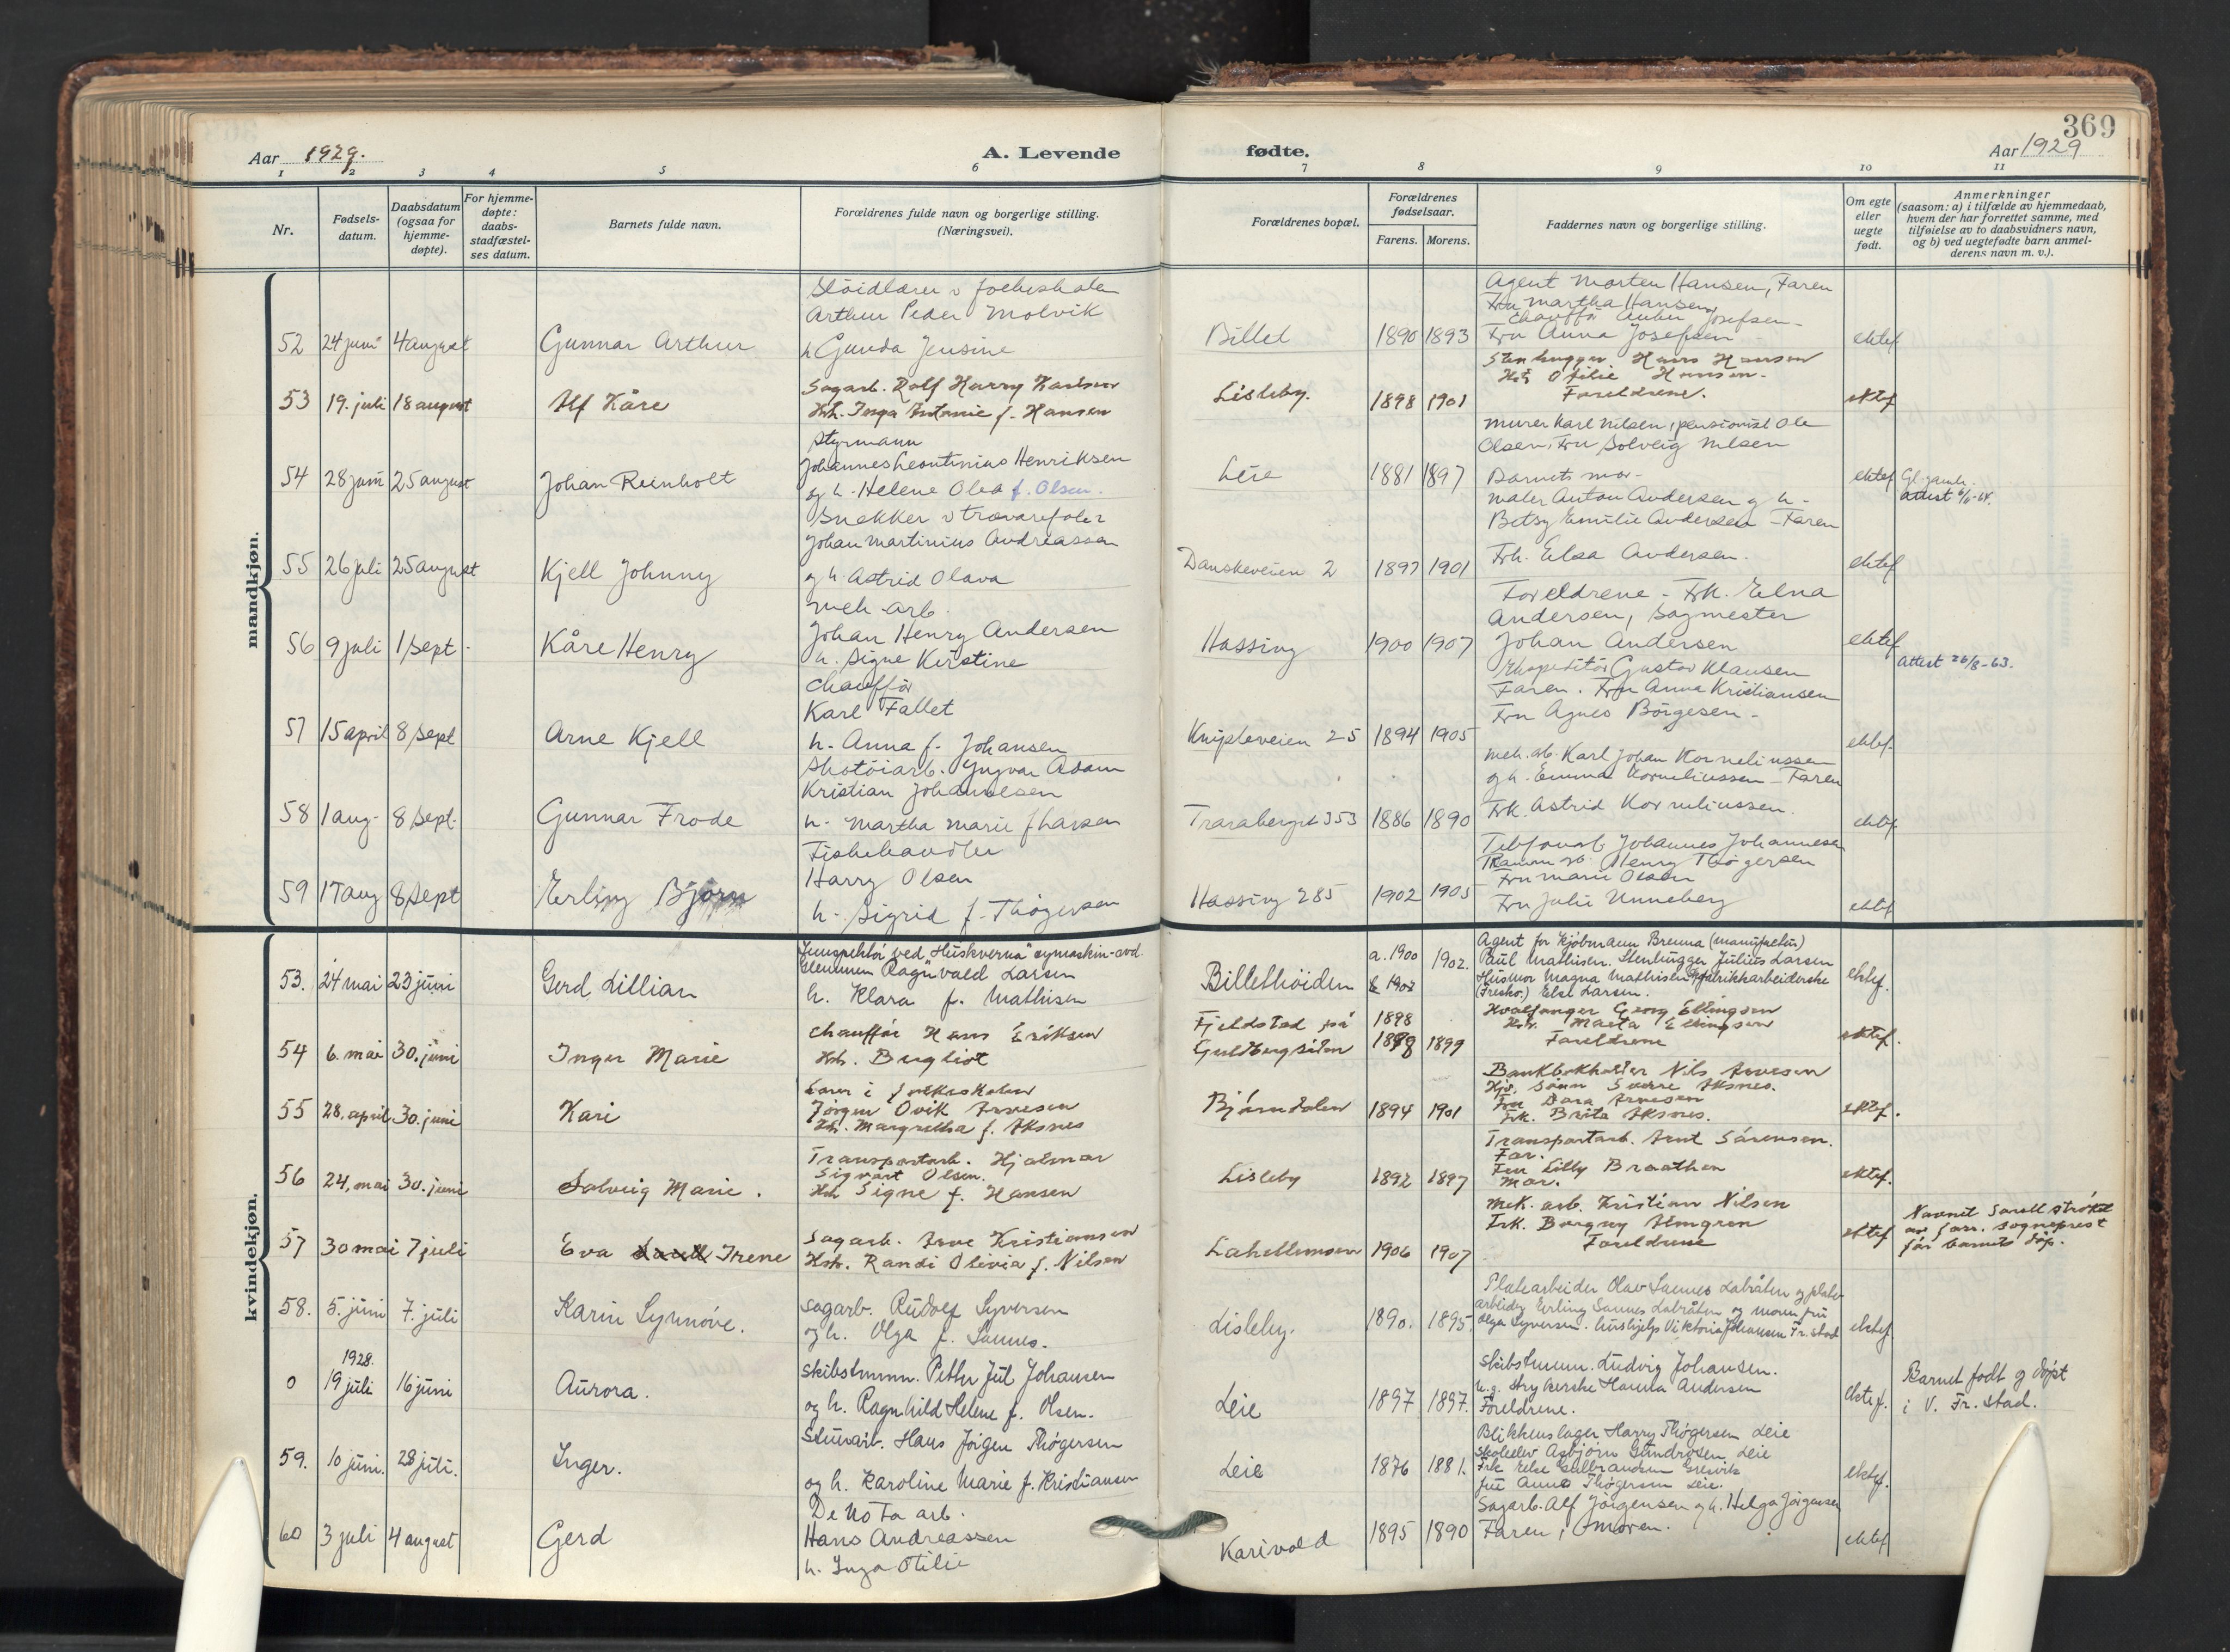 369
Aar 1929.
A. Levende
fødte.
Aar 1929
1 2 3 4 5 6 7 8 9 10 11
Nr.
Fødsels-
datum.
Daabsdatum
(ogsaa for
hjemme-
døpte).
For hjemme-
døpte:
daabs-
stadfæstel-
ses datum.
Barnets fulde navn.
Forældrenes fulde navn og borgerlige stilling.
(Næringsvei).
Forældrenes bopæl.
Forældrenes
fødselsaar.
Farens. Morens.
Faddernes navn og borgerlige stilling.
Om egte
eller
uegte
født.
Anmerkninger
(saasom: a) i tilfælde av hjemmedaab,
hvem der har forrettet samme, med
tilføielse av to daabsvidners navn,
og b) ved uegtefødte barn anmel-
derens navn m. v.).
mandkjøn.
52 24 juni 4 august
Gunnar Arthur
Sløidlærer v folkeskolen
Arthur Peder Molvik
h Gunda Jensine
Billet
1890 1893
Agent Morten Hansen, Faren
Fru Martha Hansen,
Chauffør Josefsen
Fru Anna Josefsen
ektef
53 19. juli 18 august
Alf Kåre
Sagarb. Rolf Harry Karlsen
Hst. Inga Antonie f. Hansen
Lisleby.
1898 1901
Stenhugger Hans Hansen
Hst. Otilie Hansen.
Foreldrene.
ektef
54 28 juni 25 august
Johan Reinholt
Styrmann
Johannes Leontinius Henriksen
og h. Helene Olea f. Olsen.
Leie
1881 1897
Murer Karl Nilsen, pensionist Ole
Olsen, Fru Solveig Nilsen
Barnets mor.
ektef
attest 6/6-64.
55 26 juli 25 august
Kjell Johnny
Snekker v trævarefabr
Johan Martinius Andreassen
og h. Astrid Olava
Danskeveien 2
1897 1901
Maler Anton Andersen og h.
Betsy Emilie Andersen - Faren
Frk. Elsa Andersen.
ektef
56 9 juli 1 sept.
Kåre Henry
Mek. arb.
Johan Henry Andersen
h. Signe Kirstine
Hassing
1900 1907
Foreldrene - Frk. Elna
Andersen, Sagmester
Johan Andersen
ektef
Attest 26/8-63.
57 15 april 8 sept
Arne Kjell
Chauffør
Karl Fallet
h. Anna f. Johansen
Knipleveien 25
1894 1905
Ekspeditør Gustav Klausen
Faren. Fru Anna Kristiansen
Fru Agnes Børgesen
ektef.
58 1 aug. 8 sept.
Gunnar Frode
Skotøiarb. Yngvar Adam
Kristian Johannesen
h. Martha Marie f Larsen
Traraberget 353
1886 1890
Mek. arb. Karl Johan Korneliussen
og h. Emma Korneliussen - Faren
Frk. Astrid Korneliussen.
ektef
59 17 aug 8 sept
Erling Bjørn
Fiskehandler
Harry Olsen
h. Sigrid f. Thøgersen
Hassing 285
1902 1905
Telefonarb Johannes Johannesen
Henry Thøgersen
Fru Marie Olsen
Fru Julie Unneberg
ektef
kvindekjøn.
53. 24 mai 23 juni
Gerd Lillian
Innspektør ved "Huskverna" symaskin-avd.
Glemmen Ragnvald Larsen
h. Klara f. Mathisen
Billethøiden
a. 1900
1902.
Agent for kjøbmann Brenna (manufaktur)
Paul Mathisen. Stenhugger Julius Larsen
Husmor Magna Mathisen. Fabrikkarbeiderske
(Fresko.) Else Larsen.
ektef.
54 6. mai 30. juni
Inger Marie
Chauffør Hans Eriksen
Hst. Bergliot
Fjeldstad på
Guldbergsiden
1898
1898 1899
Hvalfanger Georg Ellingsen
Hst. Marta Ellingsen
Foreldrene
ektef.
55 28. april 30. juni
Kari
Lærer i folkeskolen
Jørgen Ovik Arnesen
Hst. Margretha f. Aksnes
Bjørndalen
1894 1901
Bankbokholder Nils Arnesen
Hjs. sønn Sverre Aksnes.
Fru Dora Arnesen
Frk. Brita Aksnes.
ektef.
56 24. mai 30. juni
Solveig Marie.
Transportarb. Hjalmar
Sigvart Olsen.
Hst Signe f. Hansen
Lisleby
1892 1897
Transportarb. Arnt Sørensen.
Far.
Fru Lilly Braathen
Mor.
ektef.
57 30 mai 7 juli
Eva Irene
Sagarb. Arne Kristiansen
Hst. Randi Olivia f. Nilsen
Lahellemoen
1906 1907
Mek. arb. Kristian Nilsen
Frk. Borgny Almgren
Foreldrene
ektef
Navnet Snell strøket
av forr. sogneprest
før barnets døp.
58. 5. juni 7. juli
Karin Synnøve.
Sagarb. Rudolf Syversen
og h. Olga f. Sannes.
Lisleby.
1890. 1895.
Platearbeider Olav Sannes Labråten og plate-
arbeider Erling Sannes Labråten og moren fru
Olga Syversen. Hushjelp Viktoria Johansen Fr.stad
ektef
0 1928. 19 juli 16 juni
Aurora.
Skibstømm. Petter Jul Johansen
og h. Ragnhild Helene f. Olsen.
Leie
1897 1897.
Skibstømm. Ludvig Johansen.
u.g. Strykerske Hanna Andersen
Foreldrene.
ektef.
Barnet født og døpt
i V. Fr.stad.
59. 10 juni. 28 juli.
Inger.
Stuvarb. Hans Jørgen Thøgersen
og h. Karoline Marie f. Kristiansen
Leie
1876 1881.
Blikkenslager Harry Thøgersen Leie
Skoleelev Asbjørn Gundrosen, Leie
Frk Else Gulbrandsen Gresvik
fru Anna Thøgersen Leie.
ektef.
60 3 juli 4 august
Gerd
De No Fa arb.
Hans Andreassen
h. Inga Otilie
Karivold
1895 1890
Sagarb. Alf Jørgensen og h. Helga Jørgensen
Faren, moren.
ektef